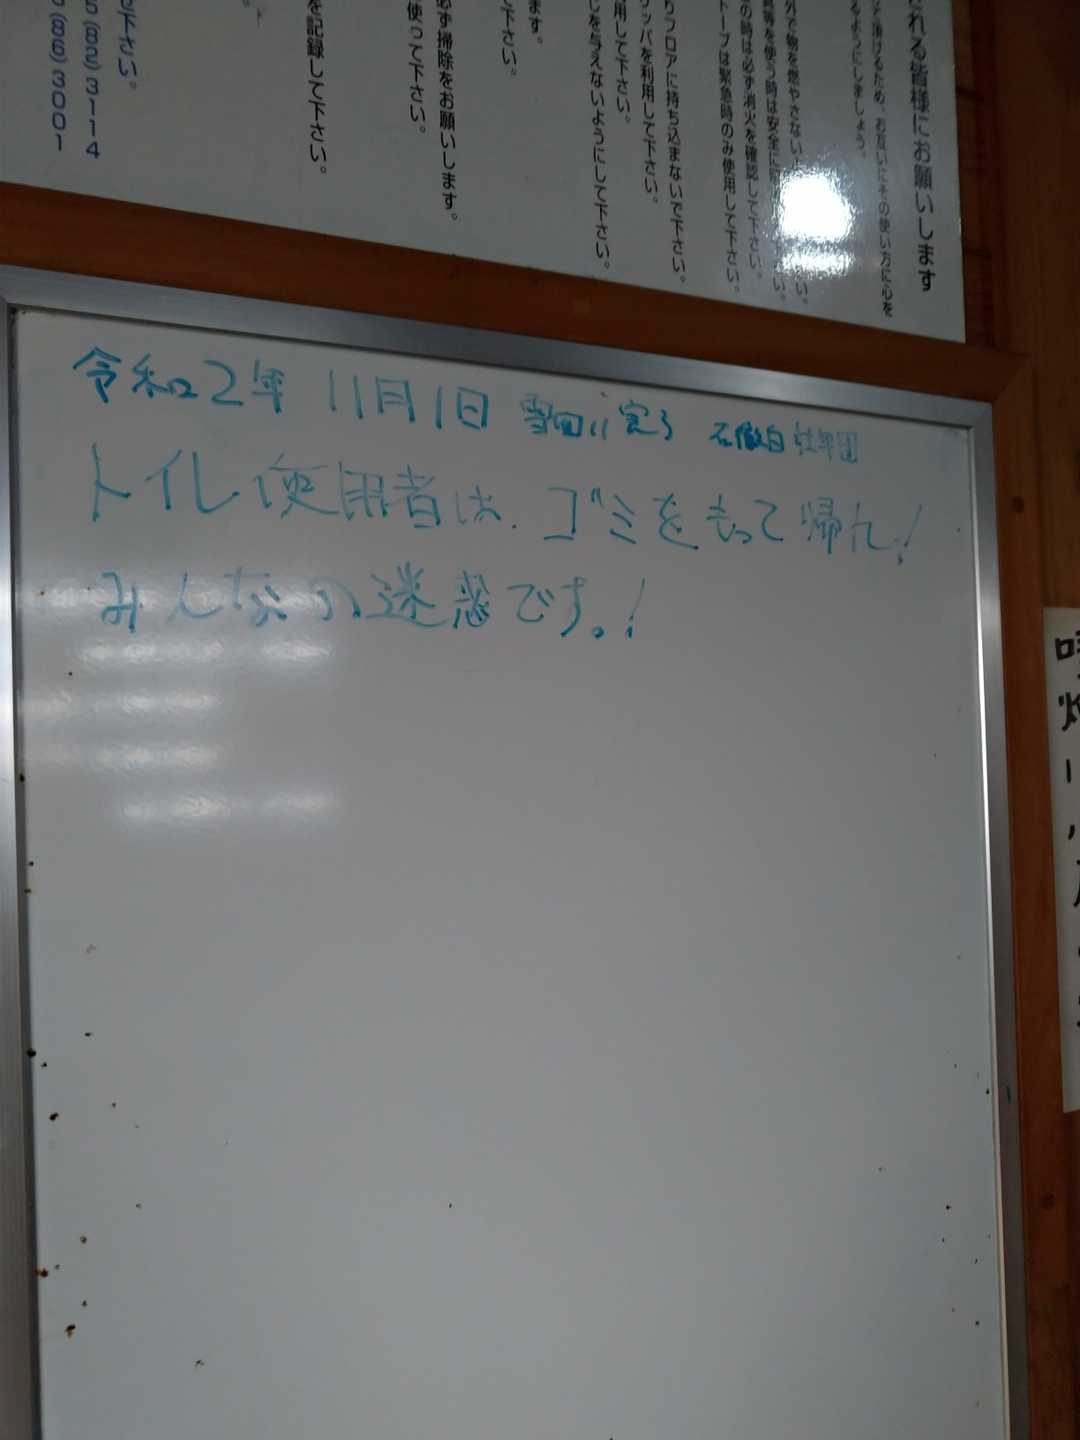 される皆様にお願いします
て頂けるため、お互いにその使い方に心を
るようにしましょう。
外で物を燃やさない
具等を使う時は安全に
の時は必ず消火を確認して下さい。
トーブは緊急時のみ使用して下さい。
りフロアに持ち込まないで下さい。
リッパを利用して下さい。
用して下さい。
じを与えないようにして下さい。
ます。
て下さい。
必ず掃除をお願いします。
使って下さい。
を記録して下さい。
せ下さい。
5(82)3114
5(86)3001
令和2年 11月1日 雪囲い完了 石徹白壮年団
トイレ使用者は、ゴミをもって帰れ!
みんなの迷惑です。!